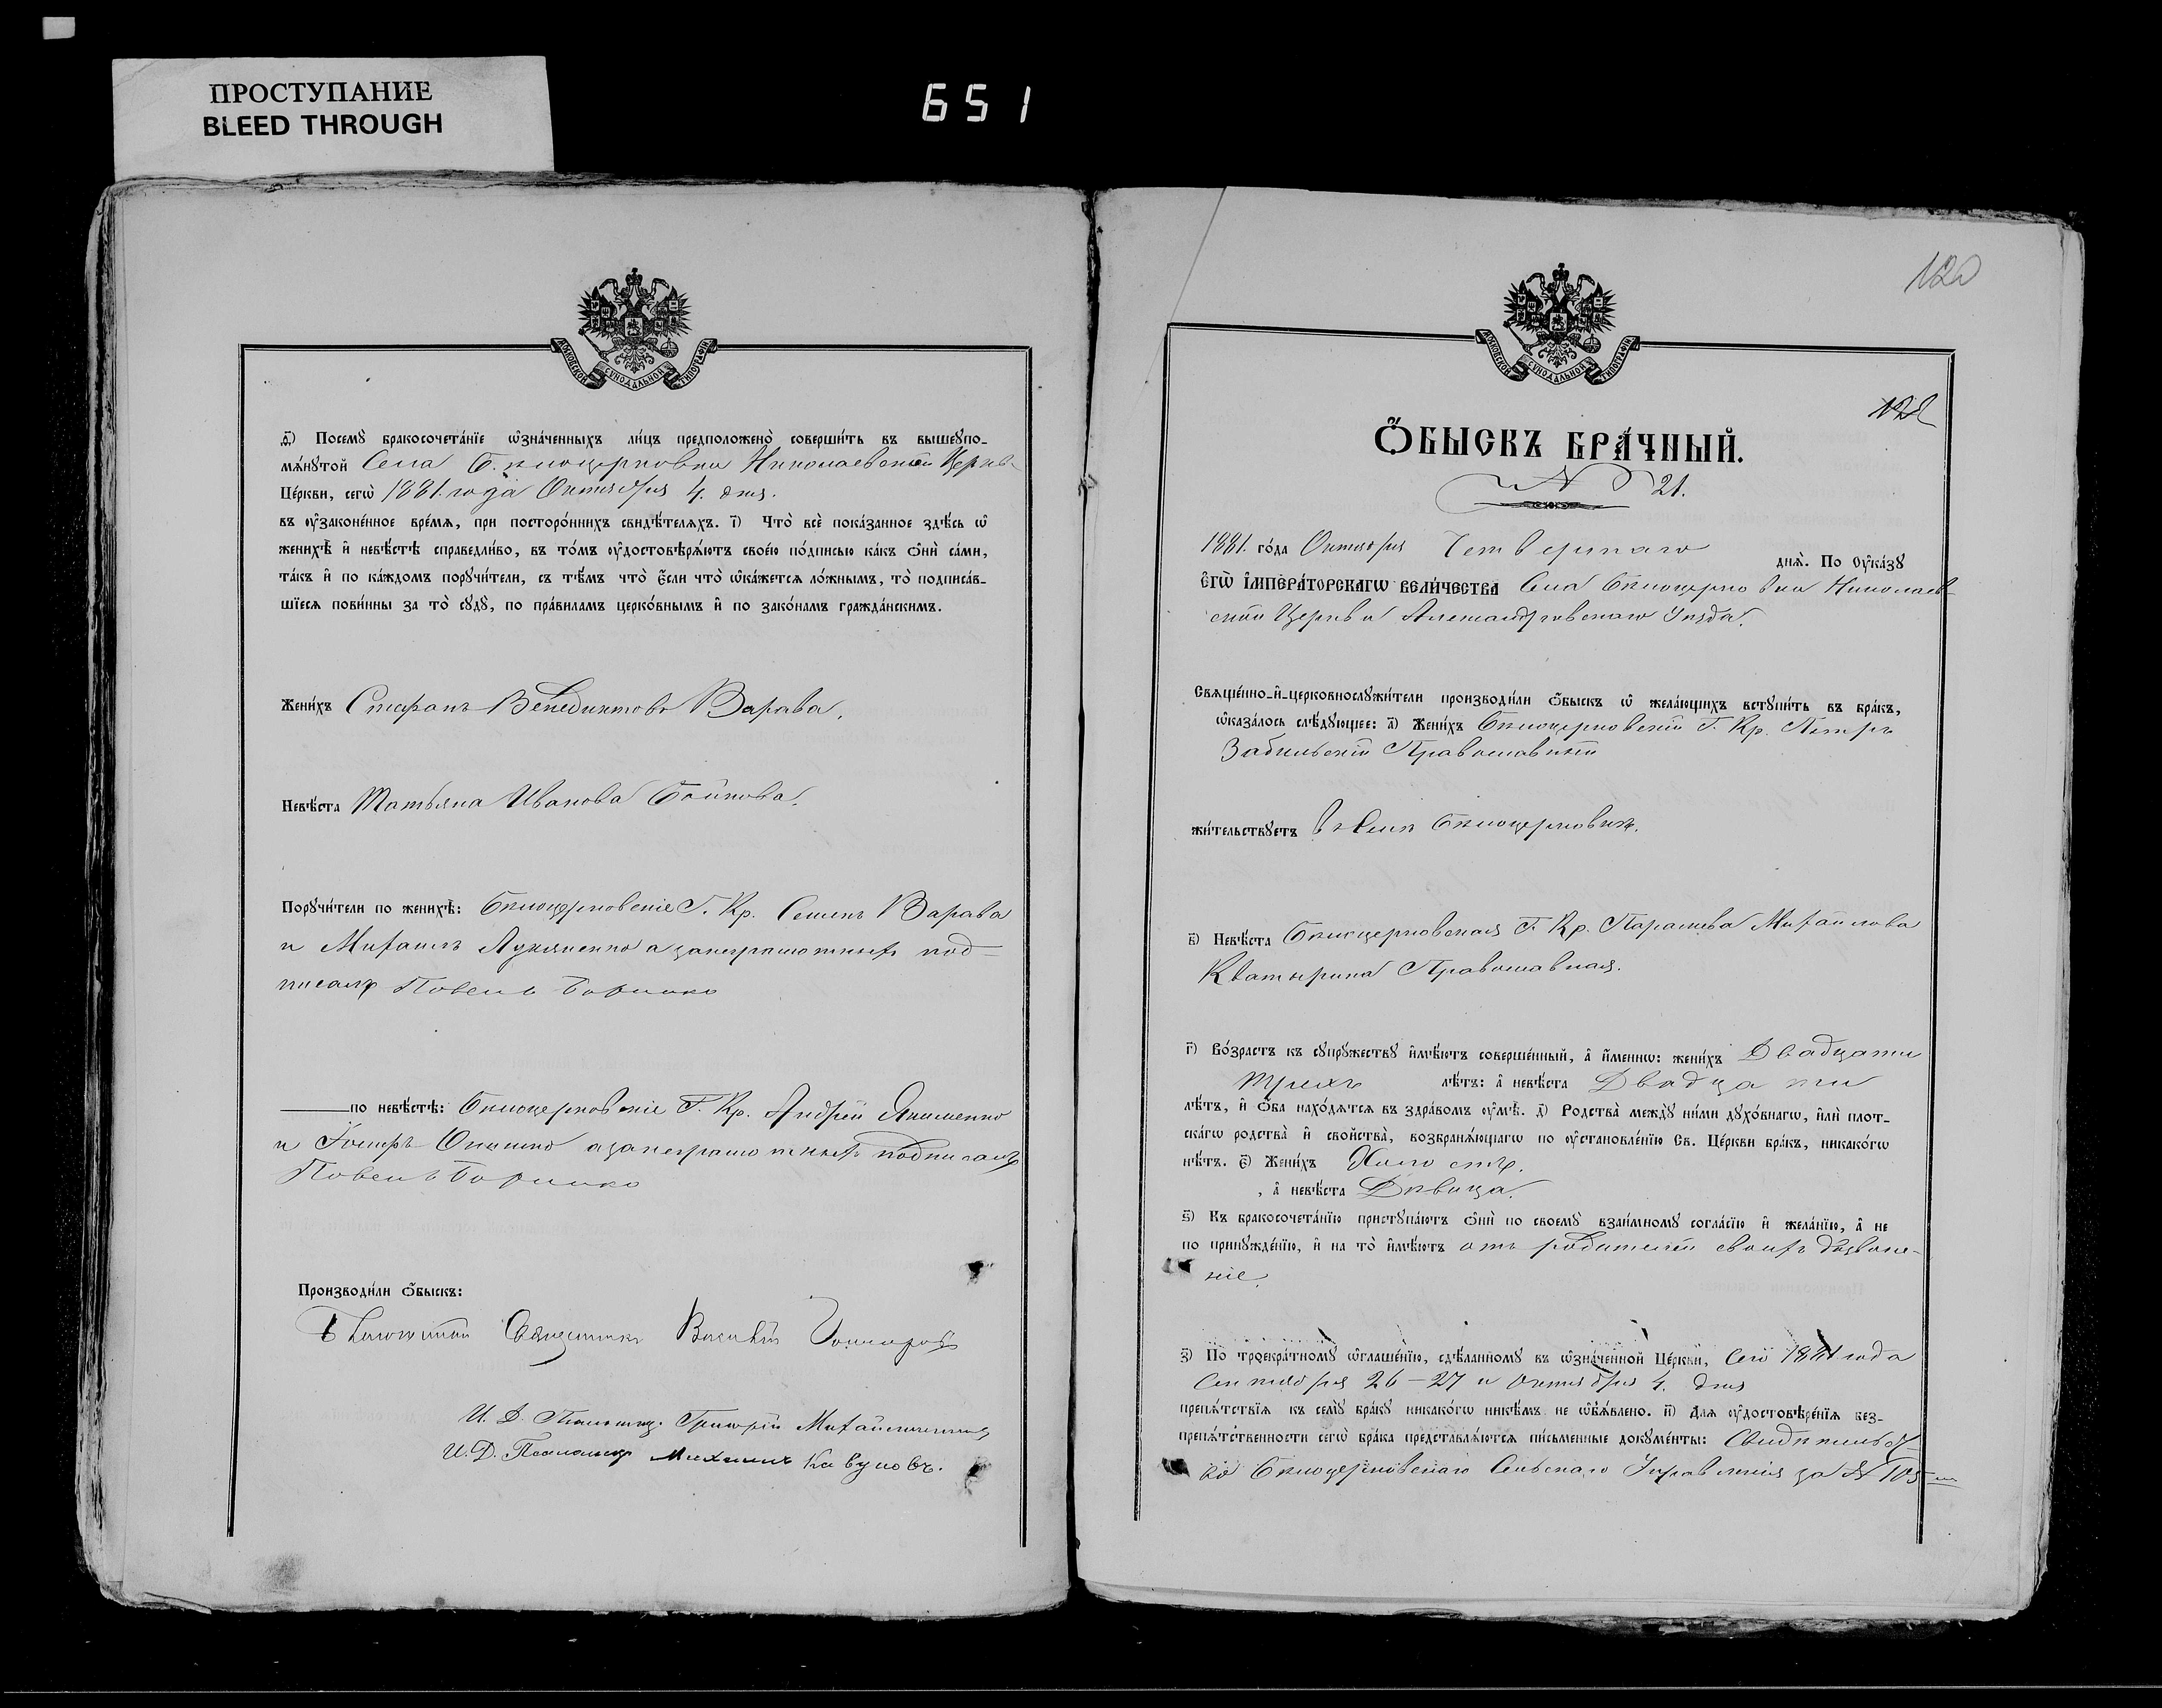 ПРОСТУПАНИЕ
BLEED THROUGH
651
МОСКОВСКОЙ СѴНОДАЛЬНОЙ ТИПОГРАФІИ
Ѳ҃) Посемꙋ̀ бракосочета́нїе ѡ҆зна́ченныхъ ли́цъ предположено̀ соверши́ть въ вышеꙋпо-
мѧ́нꙋтой Села Бѣлоцерковки Николаевской Церкв-
Це́ркви, сегѡ̀ 1881. года Октября 4. дня.
въ ѹ҆зако́не́нное вре́мѧ, при посторо́ннихъ свидѣ́телѧхъ. і҃) Что̀ всѐ пока́занное здѣ́сь ѡ҆
женихѣ̀ и҆ невѣ́стѣ справедли́во, въ то́мъ ѹ҆достовѣрѧ́ютъ свое́ю по́дписью ка́къ ѻ҆нѝ са́ми,
та́къ и҆ по ка́ждомъ порꙋчи́тели, съ тѣ́мъ что̀ є҆́сли что̀ ѡ҆ка́жетсѧ ло́жнымъ, то̀ подписа́в-
шїесѧ пови́нны за то̀ сꙋдꙋ̀, по пра́виламъ церко́внымъ и҆ по зако́намъ гражда́нскимъ.
Жени́хъ Стефанъ Венедиктовъ Варава.
Невѣ́ста Татьяна Иванова Бойкова.
Порꙋчи́тели по женихѣ̀: Бѣлоцерковскіе Г. Кр. Семенъ Варава
и Михаилъ Лукяненко а за неграмотныхъ под-
писалъ
по невѣ́стѣ: Бѣлоцерковскіе Г. Кр. Андрей Якименко
и а за неграмотныхъ подписалъ
Производи́ли ѻ҆́быскъ:
Священникъ
И. Д. Псаломщ. Григорій
И. Д. Псаломщ. Михаилъ Кавуновъ.
120
МОСКОВСКОЙ СѴНОДАЛЬНОЙ ТИПОГРАФІИ
Ѻ҆́БЫСКЪ БРА́ЧНЫЙ.
№ 21.
1881. го́да Октября Четвертаго днѧ̀. По ѹ҆ка́зꙋ
Є҆ГѠ̀ І҆МПЕРА́ТОРСКАГѠ ВЕЛИ́ЧЕСТВА Села Бѣлоцерковки Николаев-
ской Церкви Александровскаго Уѣзда.
Свѧще́нно-и҆-церковнослꙋжи́тели производи́ли ѻ҆́быскъ ѡ҆ жела́ющихъ встꙋпи́ть въ бра́къ,
ѡ҆каза́лось слѣ́дꙋющее: а҃) Жени́хъ Бѣлоцерковскій Г. Кр. Петръ
Забильскій Православный
жи́тельствꙋетъ въ селѣ Бѣлоцерковкѣ.
в҃) Невѣ́ста Бѣлоцерковская Г. Кр. Параскева Михайлова
Православная.
г҃) Во́зрастъ къ сꙋпрꙋ́жествꙋ и҆мѣ́ютъ соверше́нный, а҆ и҆́меннѡ: жени́хъ Двадцати
трехъ лѣ́тъ: а҆ невѣ́ста Двадцати
лѣ́тъ, и҆ ѻ҆́ба нахо́дѧтсѧ въ здра́вомъ ѹ҆мѣ̀. д҃) Родства̀ междꙋ̀ ни́ми дꙋхо́внагѡ, и҆лѝ плот-
ска́гѡ родства̀ и҆ сво́йства̀, возбранѧ́ющагѡ по ѹ҆становле́нїю Св. Це́ркви бра́къ, никако́гѡ
нѣ́тъ. є҃) Жени́хъ Холостъ.
, а҆ невѣ́ста Дѣвица.
ѕ҃) Къ бракосочета́нїю пристꙋпа́ютъ ѻ҆нѝ по своемꙋ̀ взаи́мномꙋ согла́сїю и҆ жела́нїю, а҆ не
по принꙋжде́нїю, и҆ на то̀ и҆мѣ́ютъ отъ родителей своихъ дозволе-
ніе.
з҃) По троекра́тномꙋ ѡ҆глаше́нїю, сдѣ́ланномꙋ въ ѡ҆зна́ченной Це́ркви, сего 1881 года
Сентября 26-27 и Октября 4. дня
препѧ́тствїѧ къ семꙋ̀ бра́кꙋ никако́гѡ никѣ́мъ не ѡ҆б̾ѧ́влено. и҃) Длѧ ѹ҆достовѣре́нїѧ без-
препѧ́тственности сегѡ̀ бра́ка представлѧ́ютсѧ пи́сьменные докꙋме́нты: Свидѣтельст-
во Бѣлоцерковскаго Сельскаго Управленія за № 105